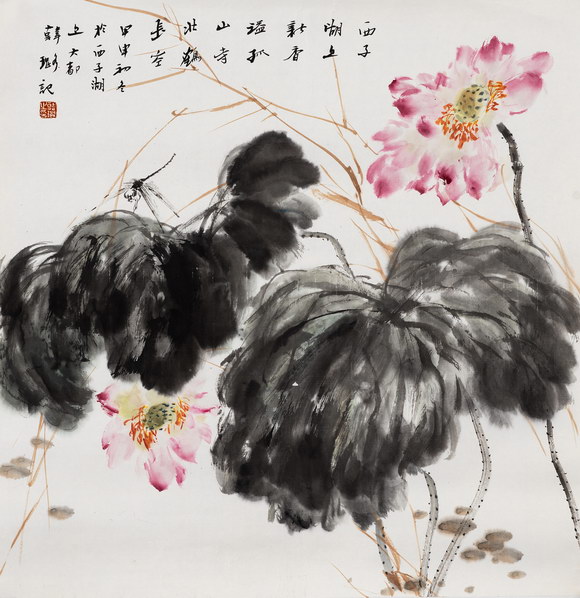 西子
湖上
新香
溢孤
山寺
北鶴
長空
甲申初冬
於西子湖
上大都
韓璐記